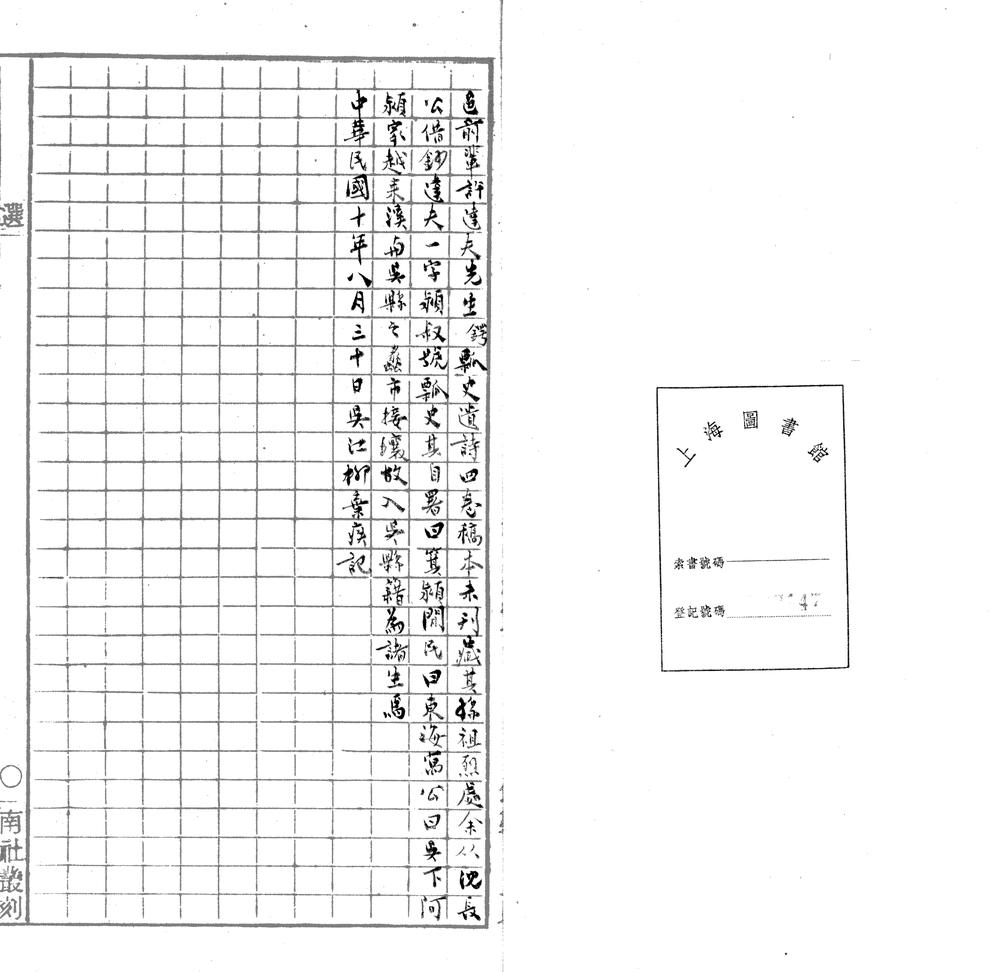 上海圖書館
索書號碼
登記號碼 47
邑前輩許達夫先生鍔瓢史遺詩四卷稿本未刊藏其孫祖烈處余从沈長
公借鈔達夫一字潁叔號瓢史其自署曰箕潁閒民曰東海萬公曰吳下阿
潁家越来溪南吳縣之蠡市接壤故入吳縣籍為諸生焉
中華民國十年八月三十日吳江柳棄疾記
選
南社叢刻